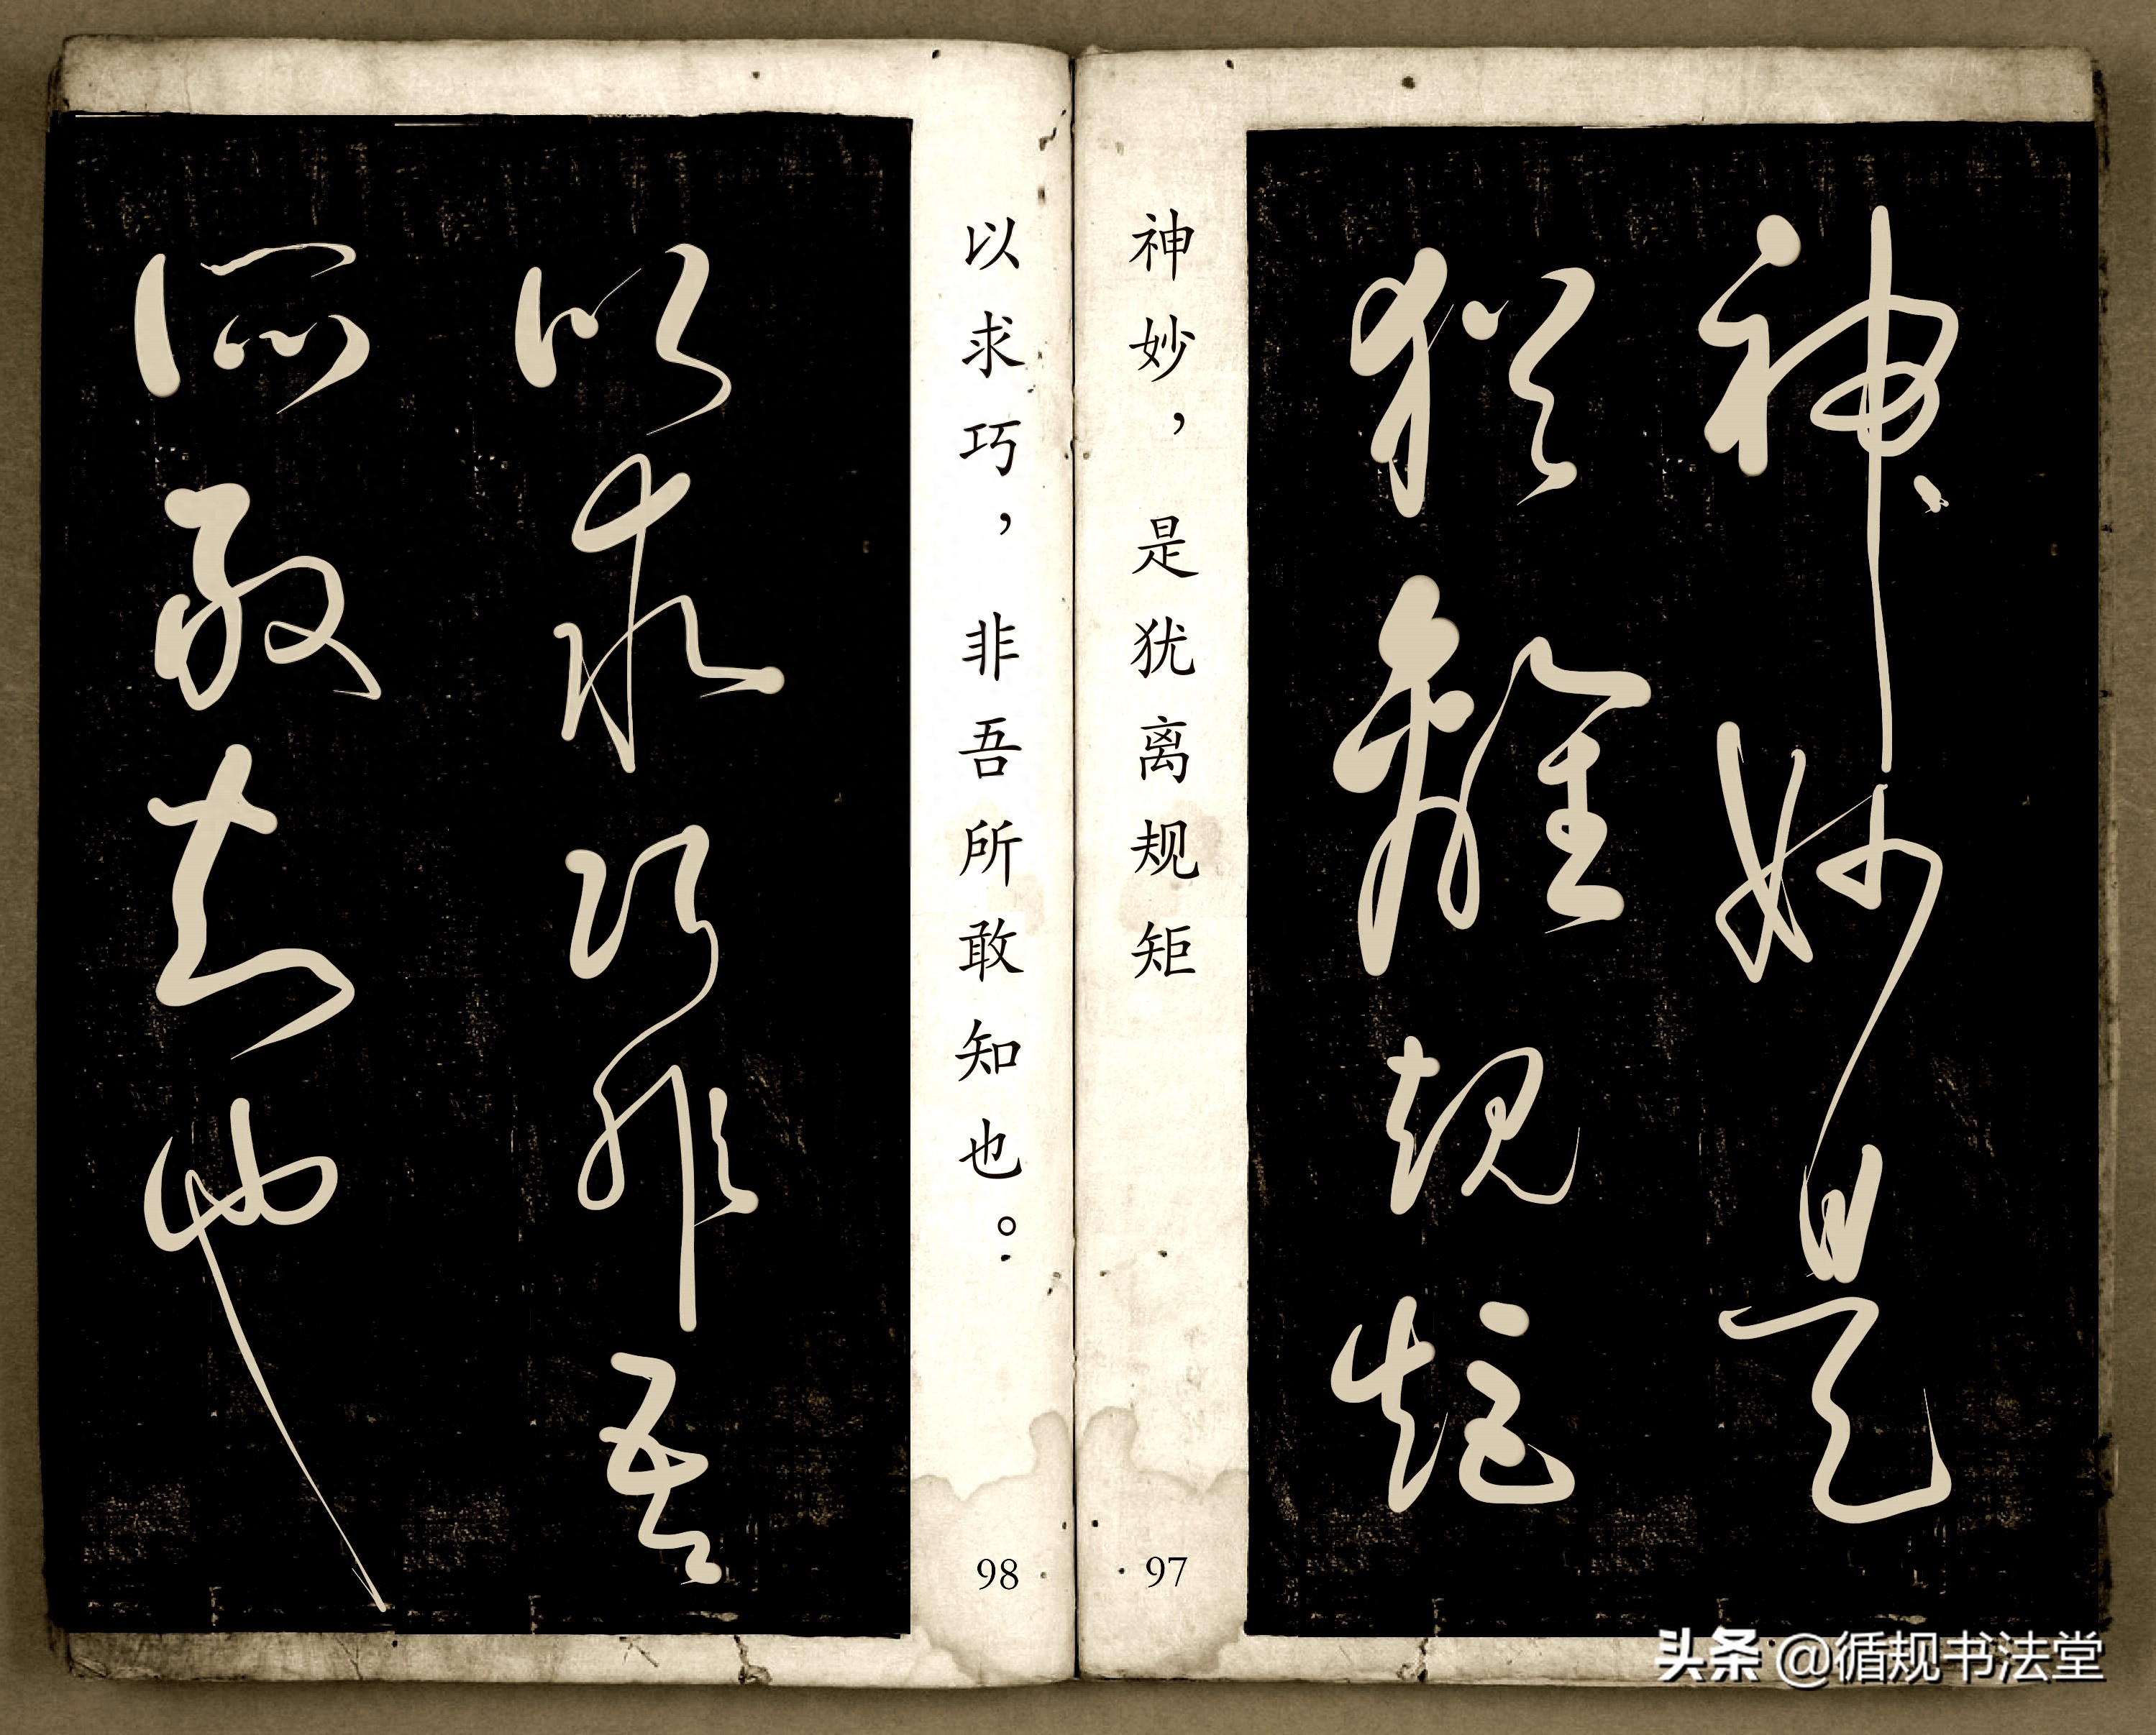 神妙是
犹離規矩
神妙，是犹离规矩
97
以求巧非吾
所敢知也
以求巧，非吾所敢知也。
98
头条 @循规书法堂